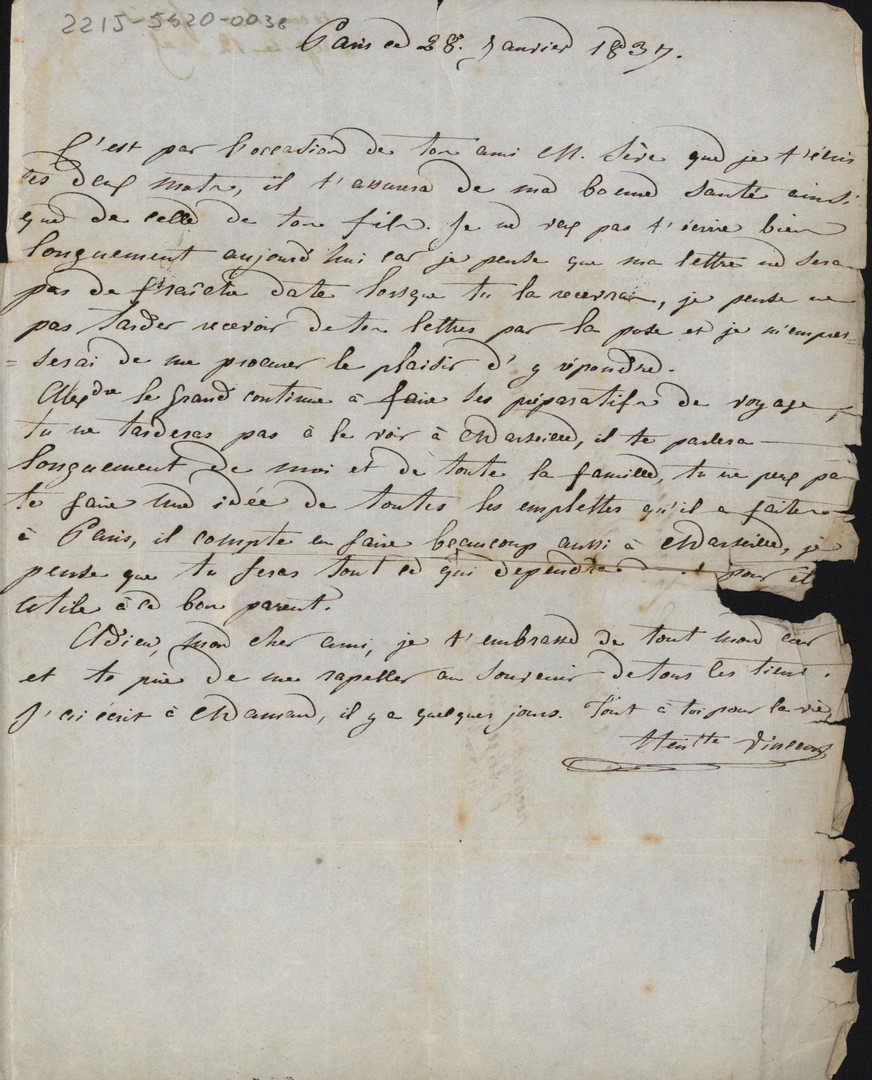 2215-5620-0038
Paris ce 28. Janvier 1837.
C'est par l'occasion de ton ami M. Sère que je t'écris
ces deux mots, il t'assurera de ma bonne santé ainsi
que de celle de ton fils. Je ne veux pas t'écrire bien
longuement aujourd'hui car je pense que ma lettre ne sera
pas de fraîche date lorsque tu la recevras, je pense ne
pas tarder recevoir de tes lettres par la poste et je m'empres=
=serai de me procurer le plaisir d'y répondre.
Alexdre le grand continue à faire ses préparatifs de voyage,
tu ne tarderas pas à le voir à Marseille, il te parlera
longuement de moi et de toute la famille, tu ne peux pa
te faire une idée de toutes les emplettes qu'il a faites
à Paris, il compte en faire beaucoup aussi à Marseille, je
pense que tu feras tout ce qui dépendra pour êt
utile à ce bon parent.
Adieu, mon cher ami, je t'embrasse de tout mon cœur
et te prie de me rapeller au souvenir de tous les tiens.
J'ai écrit à Maman, il y a quelques jours. Tout à toi pour la vie